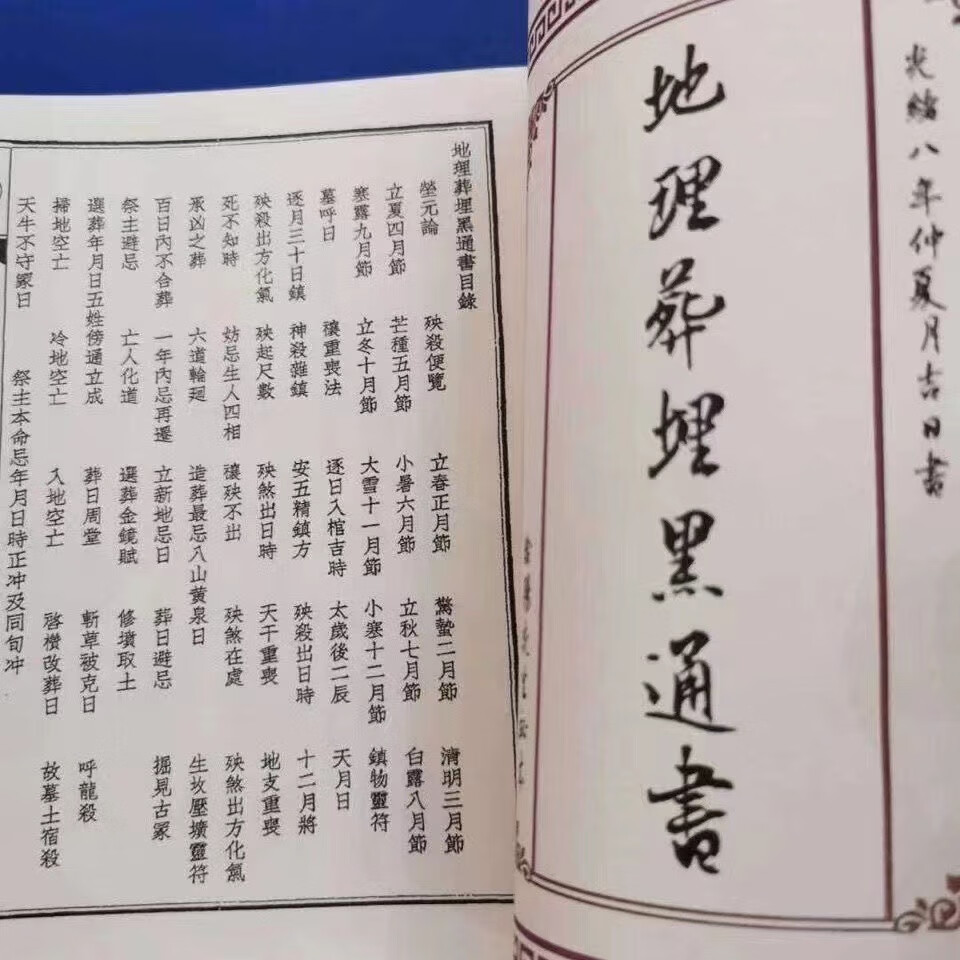 光緒八年仲夏月吉日書
地理葬埋黑通書
地理葬埋黑通書目錄
塋元論 殃殺便覽 立春正月節 驚蟄二月節 清明三月節
立夏四月節 芒種五月節 小暑六月節 立秋七月節 白露八月節
寒露九月節 立冬十月節 大雪十一月節 小寒十二月節 鎮物靈符
墓呼日 禳重喪法 逐日入棺吉時 太歲後二辰 天月日
逐月三十日鎮 神殺雜鎮 安五精鎮方 殃殺出日時 十二月將
殃殺出方化氣 殃起尺數 殃煞出日時 天干重喪 地支重喪
死不知時 妨忌生人四相 禳殃不出 殃煞在處 殃煞出方化氣
承凶之葬 六道輪廻 造葬最忌八山黄泉日 生坟壓壙靈符
百日內不合葬 一年內忌再遷 立新地忌日 葬日避忌 掘見古冢
祭主避忌 亡人化道 選葬金鏡賦 修墳取土
選葬年月日五姓傍通立成 葬日周堂 斬草被克日 呼龍殺
掃地空亡 冷地空亡 入地空亡 啓攢改葬日 故墓土宿殺
天牛不守冢日 祭主本命忌年月日時正冲及同旬冲